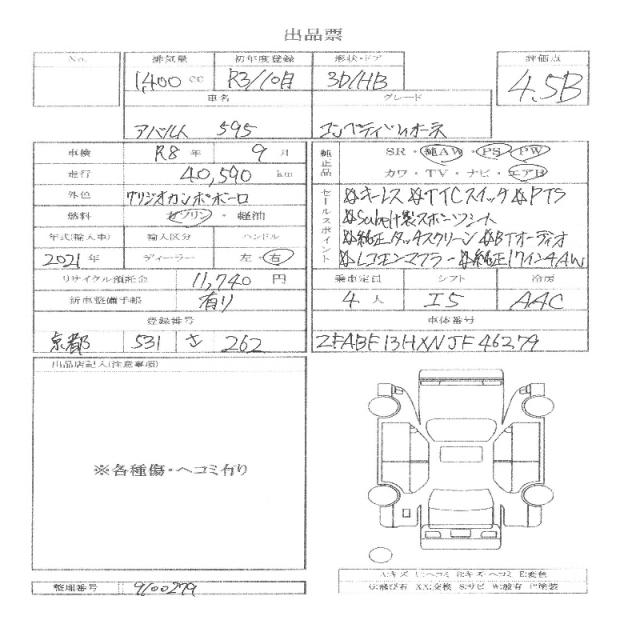 出品票
No. 排気量 初年度登録 形状・ドア 評価点
1,400 cc R3/10月 3D/HB 4.5B
車名 グレード
アバルト 595 コンペティツィオーネ
車検 R8 年 9 月
走行 40,590 km
外色 グリジオカンポボーロ
燃料 ガソリン ・ 軽油
年式(輸入車) 輸入区分 ハンドル
2021 年 ディーラー 左・右
リサイクル預託金 11,740 円
新車整備手帳 有り
登録番号
京都 531 さ 262
純正品 SR・純AW・PS・PW
カワ・TV・ナビ・エアB
セールスポイント
キーレス TTCスイッチ PTS
Sabelt製スポーツシート
純正タッチスクリーン BTオーディオ
レコモンマフラー 純正17インチAW
乗車定員 シフト 冷房
4 人 I5 AAC
車体番号
ZFABF13HXNJF46279
出品店記入(注意事項)
※各種傷・ヘコミ有り
整理番号 9100279
A:キズ U:ヘコミ B:キズ・ヘコミ E:変色
G:飛び石 XX:交換 S:サビ W:波有 P:塗装